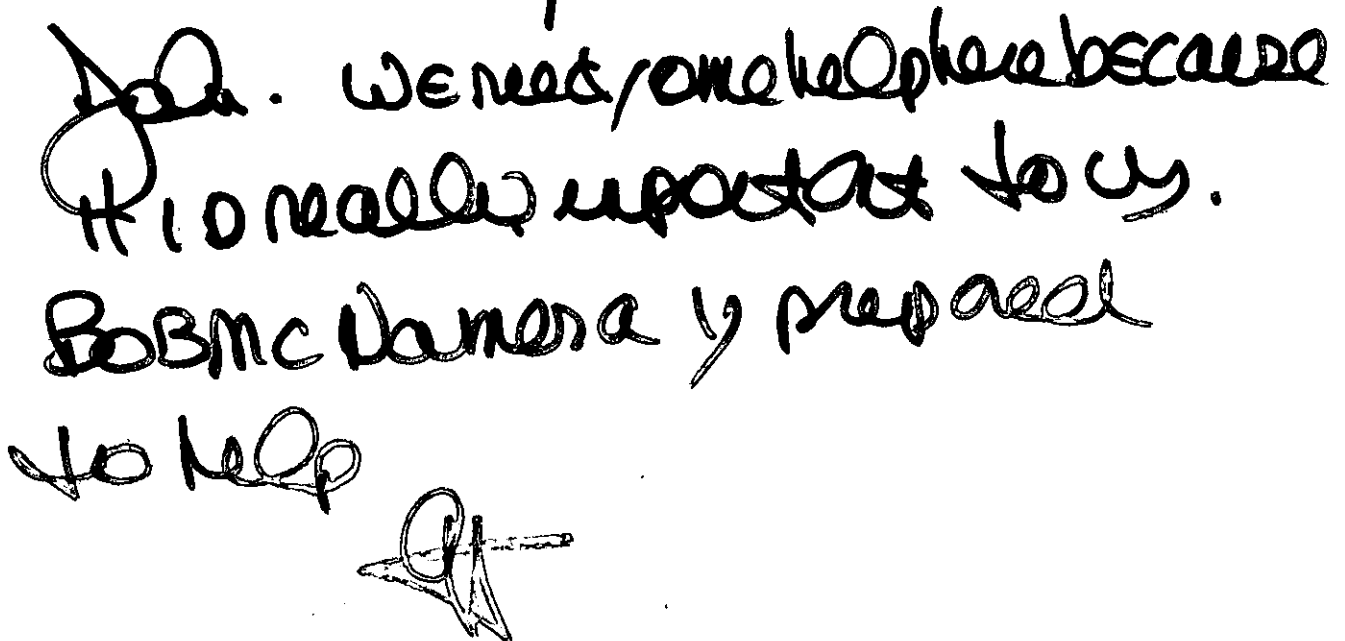 John. We need some help here because
it is really important to us.
Bob McNamara is prepared
to help